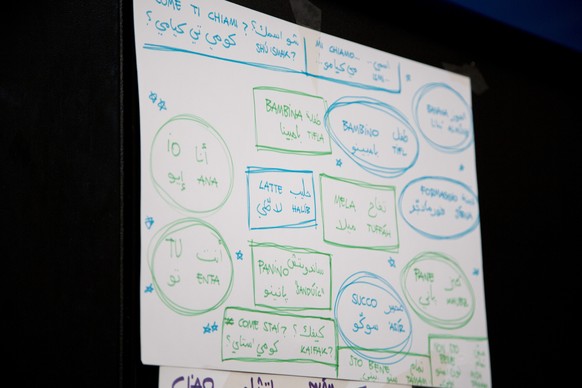 COME TI CHIAMI? شو اسمك؟
كومي تي كيامي؟ SHU ISMAK?
MI CHIAMO... اسمي...
مي كيامو...
BAMBINA طفلة
بامبينا TIFLA
BAMBINO طفل
بامبينو TIFL
BANANA
بنانا
IO أنا
إيو ANA
LATTE حليب
لاتّي HALIB
MELA تفاح
ميلا TUFFAH
FORMAGGIO
فورماجّو
TU أنت
تو ENTA
PANINO ساندويتش
بانينو SANDUIC
SUCCO عصير
سوكّو ASIR
PANE خبز
باني
COME STAI? كيفك؟
كومي ستاي؟ KAIFAK?
STO BENE
IO STO
BENE
CIAO